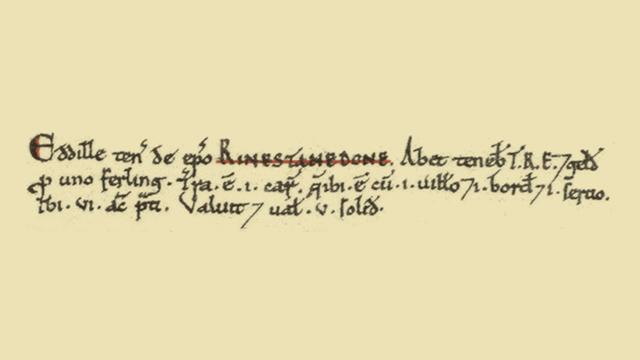 Eddille ten̄ de ep̄o RINESTANEDONE. Abet teneb̄ T.R.E. ⁊ geld̄
ꝑ uno ferling. Tr̄a. ē. i. car̄. q̄ ibi. ē cū. i. uill̄o ⁊ i. bord̄ ⁊ i. seruo.
Ibi. vi. ac̄ p̄ti. Valuit ⁊ ual̄. v. solid̄.